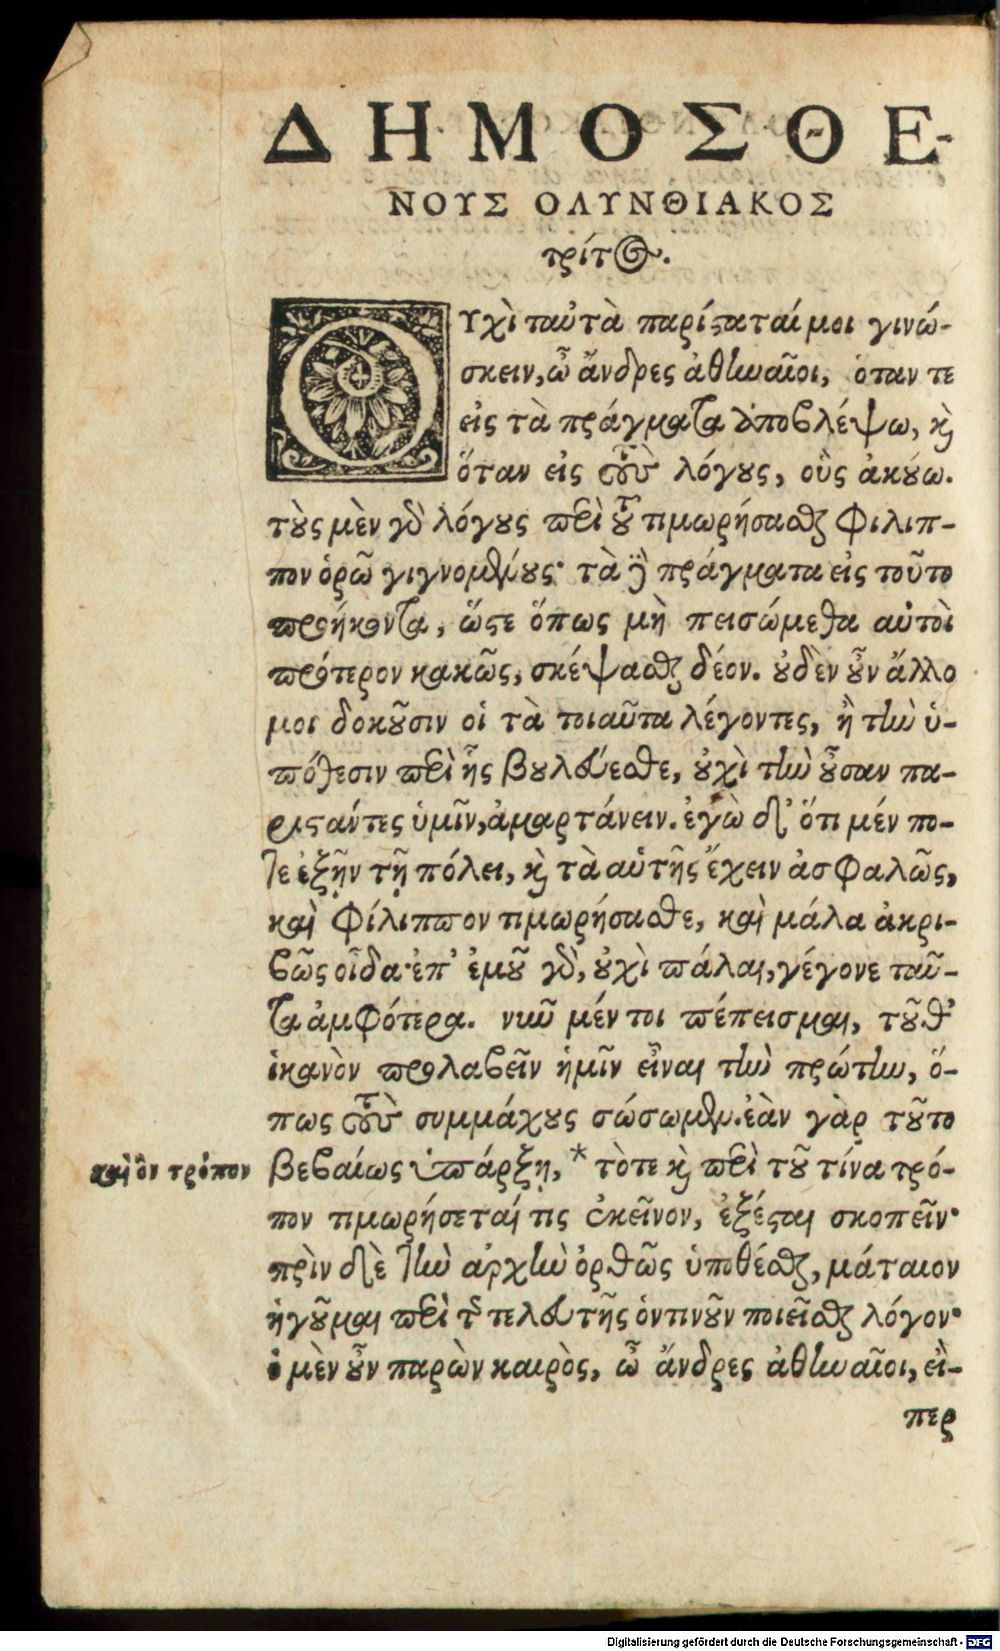 ΔΗΜΟΣΘΕ-
ΝΟΥΣ ΟΛΥΝΘΙΑΚΟΣ
τρίτος.
ΟΥχὶ ταὐτὰ παρίσταταί μοι γινώ-
σκειν, ὦ ἄνδρες ἀθηναῖοι, ὁταν τε
εἰς τὰ πράγματα ἀποβλέψω, καὶ
ὅταν εἰς τοὺς λόγους, οὓς ἀκούω.
τοὺς μὲν γὰρ λόγους περὶ τοῦ τιμωρήσασθαι Φίλιπ-
πον ὁρῶ γιγνομένους· τὰ δὲ πράγματα εἰς τοῦτο
προήκοντα, ὥστε ὅπως μὴ πεισώμεθα αὐτοὶ
πρότερον κακῶς, σκέψασθαι δέον. οὐδὲν οὖν ἄλλο
μοι δοκοῦσιν οἱ τὰ τοιαῦτα λέγοντες, ἢ τὴν ὑ-
πόθεσιν περὶ ἧς βουλεύεσθε, οὐχὶ τὴν οὖσαν πα-
ριστάντες ὑμῖν, ἁμαρτάνειν. ἐγὼ δ’ ὅτι μέν πο-
τε ἐξῆν τῇ πόλει, καὶ τὰ αὑτῆς ἔχειν ἀσφαλῶς,
καὶ Φίλιππον τιμωρήσασθε, καὶ μάλα ἀκρι-
βῶς οἶδα· ἐπ’ ἐμοῦ γὰρ, οὐχὶ πάλαι, γέγονε ταῦ-
τα ἀμφότερα. νῦν μέν τοι πέπεισμαι, τοῦθ’
ἱκανὸν προλαβεῖν ἡμῖν εἶναι τὴν πρώτην, ὅ-
πως τοὺς συμμάχους σώσωμεν. ἐὰν γὰρ τοῦτο
καὶ ὃν τρόπον
βεβαίως ὑπάρξῃ, * τότε καὶ περὶ τοῦ τίνα τρό-
πον τιμωρήσεταί τις ἐκεῖνον, ἐξέσται σκοπεῖν·
πρὶν δὲ τὴν ἀρχὴν ὀρθῶς ὑποθέσθαι, μάταιον
ἡγοῦμαι περὶ τῆς τελευτῆς ὁντινοῦν ποιεῖσθαι λόγον·
ὁ μὲν οὖν παρὼν καιρὸς, ὦ ἄνδρες ἀθηναῖοι, εἴ-
περ
Digitalisierung gefördert durch die Deutsche Forschungsgemeinschaft - DFG